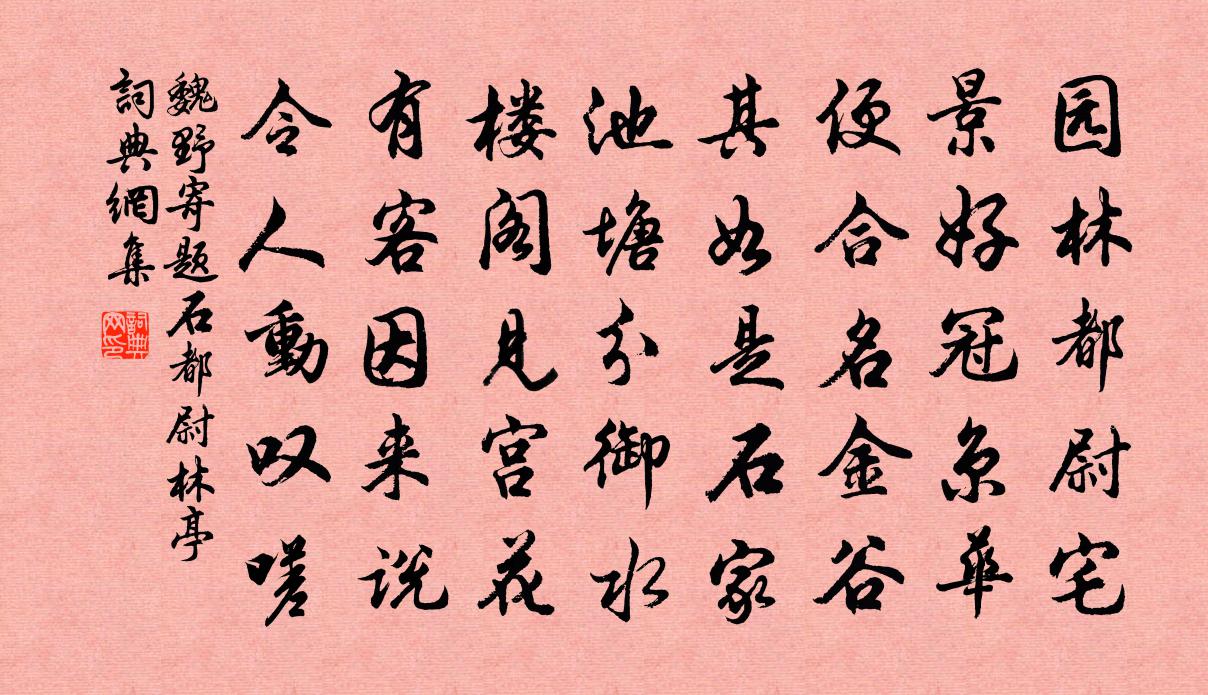 园林都尉宅
景好冠京华
便合名金谷
其如是石家
池塘分御水
楼阁见宫花
有客因来说
令人动叹嗟
魏野寄题石都尉林亭
詞典網集
詞典网印